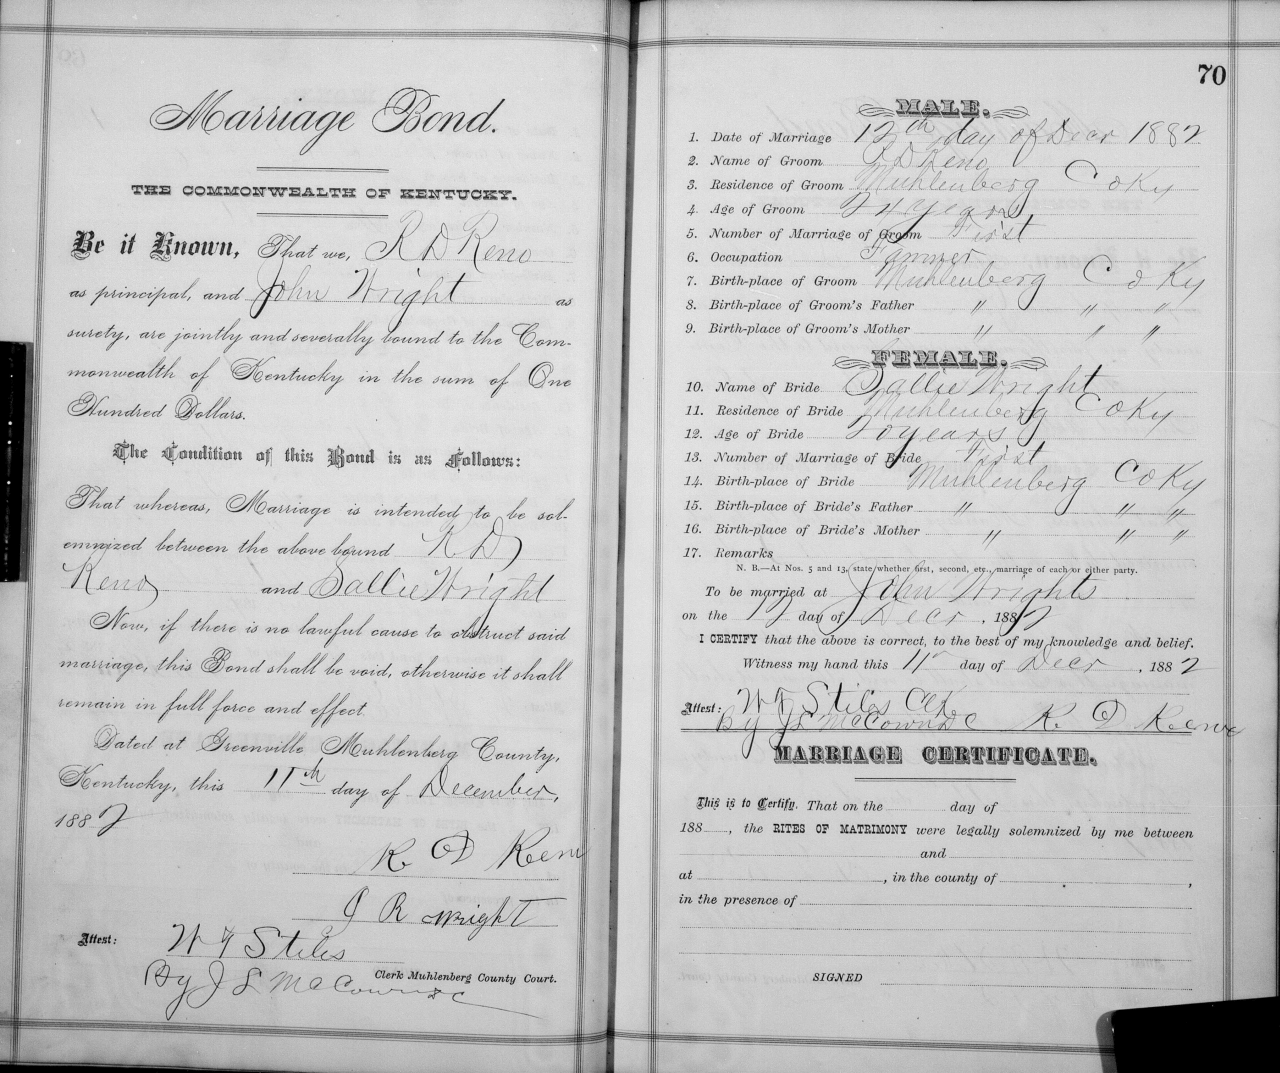 Marriage Bond.
THE COMMONWEALTH OF KENTUCKY.
Be it Known, That we, R D Reno
as principal, and John Wright as
surety, are jointly and severally bound to the Com-
monwealth of Kentucky in the sum of One
Hundred Dollars.
The Condition of this Bond is as Follows:
That whereas, Marriage is intended to be sol-
emnized between the above bound R D
Reno and Sallie Wright
Now, if there is no lawful cause to obstruct said
marriage, this Bond shall be void, otherwise it shall
remain in full force and effect.
Dated at Greenville Muhlenberg County,
Kentucky, this 11th day of December,
1882
R. D Reno
J R Wright
Attest: W T Stiles
Clerk Muhlenberg County Court.
By J S McCown DC
70
MALE.
1. Date of Marriage 12th day of Decr 1882
2. Name of Groom R D Reno
3. Residence of Groom Muhlenberg Co Ky
4. Age of Groom 24 years
5. Number of Marriage of Groom First
6. Occupation Farmer
7. Birth-place of Groom Muhlenberg Co Ky
8. Birth-place of Groom's Father " " "
9. Birth-place of Groom's Mother " " "
FEMALE.
10. Name of Bride Sallie Wright
11. Residence of Bride Muhlenberg Co Ky
12. Age of Bride 20 years
13. Number of Marriage of Bride First
14. Birth-place of Bride Muhlenberg Co Ky
15. Birth-place of Bride's Father " " "
16. Birth-place of Bride's Mother " " "
17. Remarks
N. B.—At Nos. 5 and 13, state whether first, second, etc., marriage of each or either party.
To be married at John Wrights
on the 12 day of Decr, 1882
I CERTIFY that the above is correct, to the best of my knowledge and belief.
Witness my hand this 11th day of Decr, 1882
Attest: W T Stiles Clk
By J S McCown DC R. D Reno
MARRIAGE CERTIFICATE.
This is to Certify. That on the day of
188 , the RITES OF MATRIMONY were legally solemnized by me between
and
at , in the county of ,
in the presence of
SIGNED